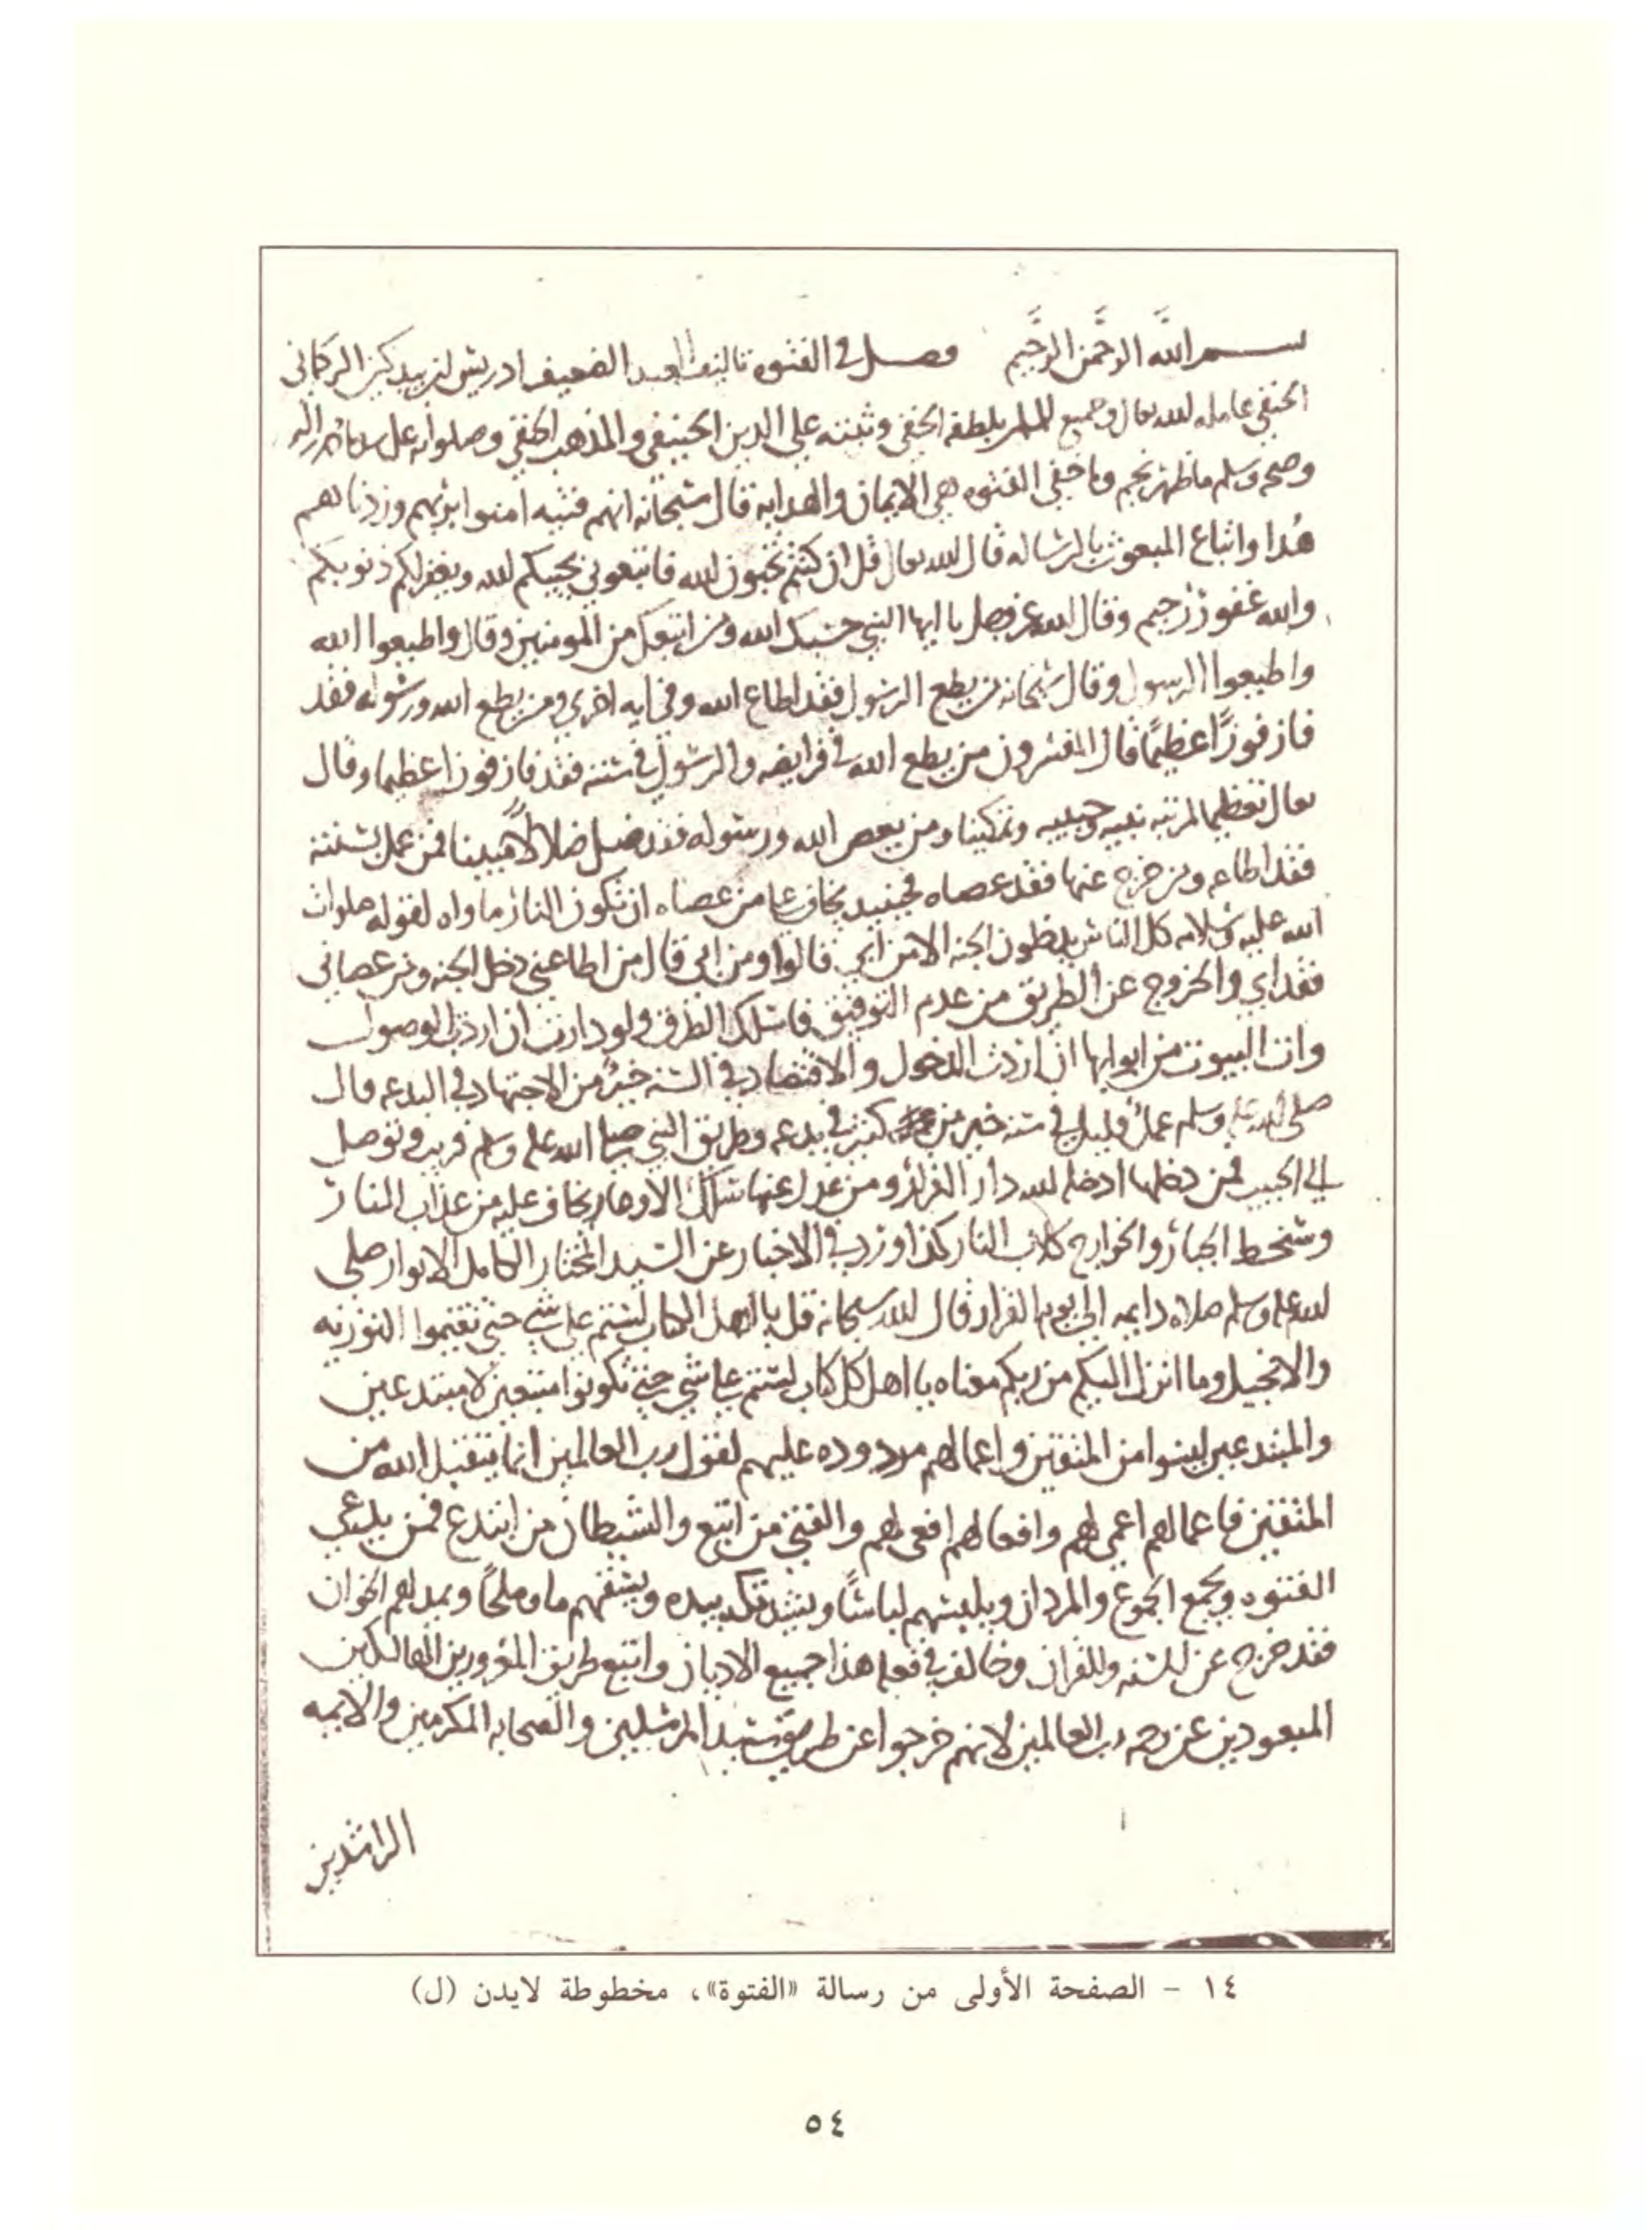 بسم الله الرحمن الرحيم فصل في الفتوه تاليف العبد الضعيف ادريس بن بيدكين التركماني
الحنفي عامله الله تعالى وجميع المسلمين بلطفه الخفي وثبته علي الدين الحنيفي والمذهب الحنفي وصلواته على سيدنا محمد واله
وصحبه وسلم ما ظهر نجم وما خفي الفتوه هي الايمان والهدايه قال سبحانه انهم فتيه امنوا بربهم وزدناهم
هُدا واتباع المبعوث بالرساله قال الله تعالى قل ان كنتم تحبون الله فاتبعوني يحببكم الله ويغفر لكم ذنوبكم
والله غفور رحيم وقال الله عز وجل يا ايها النبي حسبك الله ومن اتبعك من المومنين وقال واطيعوا الله
واطيعوا الرسول وقال سبحانه من يطع الرسول فقد اطاع الله وفي ايه اخري ومن يطع الله ورسوله فقد
فاز فوزًا عظيمًا قال المفسرون من يطع الله في فرايضه والرسول في سننه فقد فاز فوزا عظيما وقال
تعالى تعظيما لمرتبه نبيه وحبيبه وتمكينا ومن يعص الله ورسوله فقد ضل ضلالاً مبينا فمن عمل بسنته
فقد اطاعه ومن خرج عنها فقد عصاه فحينيد يخاف علي من عصاه ان تكون النار ماواه لقوله صلوات
الله عليه وسلامه كل الناس يدخلون الجنه الا من ابي قالوا ومن ابي قال من اطاعني دخل الجنه ومن عصاني
فقد ابي والخروج عن الطريق من عدم التوفيق فاسلك الطرق ولو دارت ان اردت الوصول
وات البيوت من ابوابها ان اردت الدخول والاقتصاد في السنه خير من الاجتهاد في البدعه قال
صلى الله عليه وسلم عمل قليل في سنه خير من كثير في بدعه وطريق النبي صلى الله عليه وسلم قريب وتوصل
الي الحبيب فمن دخلها ادخله الله دار القرار ومن عدل عنها سلك الاوعار يخاف عليه من عذاب النار
وسخط الجبار والخوارج كلاب النار كذا ورد في الاخبار عن السيد المختار الكامل الانوار صلى
الله عليه وسلم صلاه دايمه الى يوم القرار قال الله سبحانه قل يا اهل الكتاب لستم على شي حتي تقيموا التوريه
والانجيل وما انزل اليكم من ربكم معناه يا اهل كل كتاب لستم على شي حتي تكونوا متبعين لا مبتدعين
والمبتدعين ليسوا من المتقين واعمالهم مردوده عليهم لقول رب العالمين انما يتقبل الله من
المتقين فاعمالهم اعمى لهم وافعالهم افعى لهم والفتي من اتبع والشيطان من ابتدع فمن يدعي
الفتوه ويجمع الجموع والمردان ويلبسهم لباسًا ويشد تكه بيده ويسقيهم ما وملحًا ويمد لهم الخوان
فقد خرج عن السنه والقران وخالف في فعله هذا جميع الاديان واتبع طريق المغرورين الهالكين
المبعودين عن رحمه رب العالمين لانهم خرجوا عن طريق سيد المرسلين والصحابه المكرمين والايمه
الراشدين
١٤ - الصفحة الأولى من رسالة «الفتوة»، مخطوطة لايدن (ل)
٥٤